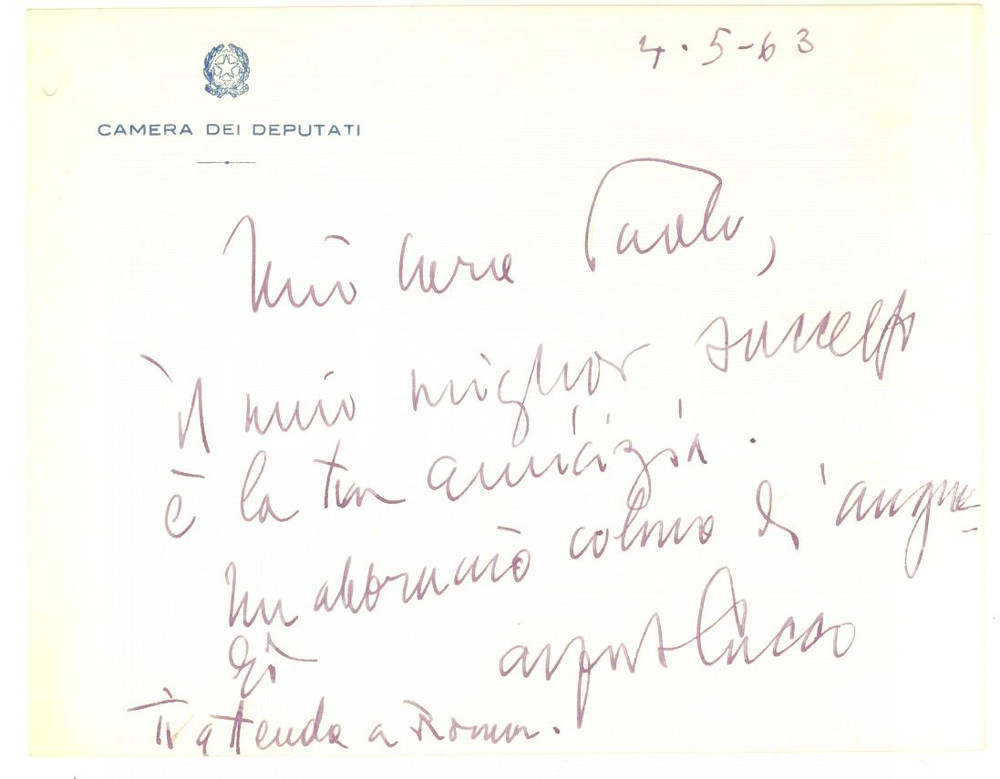 4.5-63
CAMERA DEI DEPUTATI
Mio caro Paolo,
il mio miglior successo
è la tua amicizia.
Un abbraccio colmo d'augu-
ri
Ti attendo a Roma.